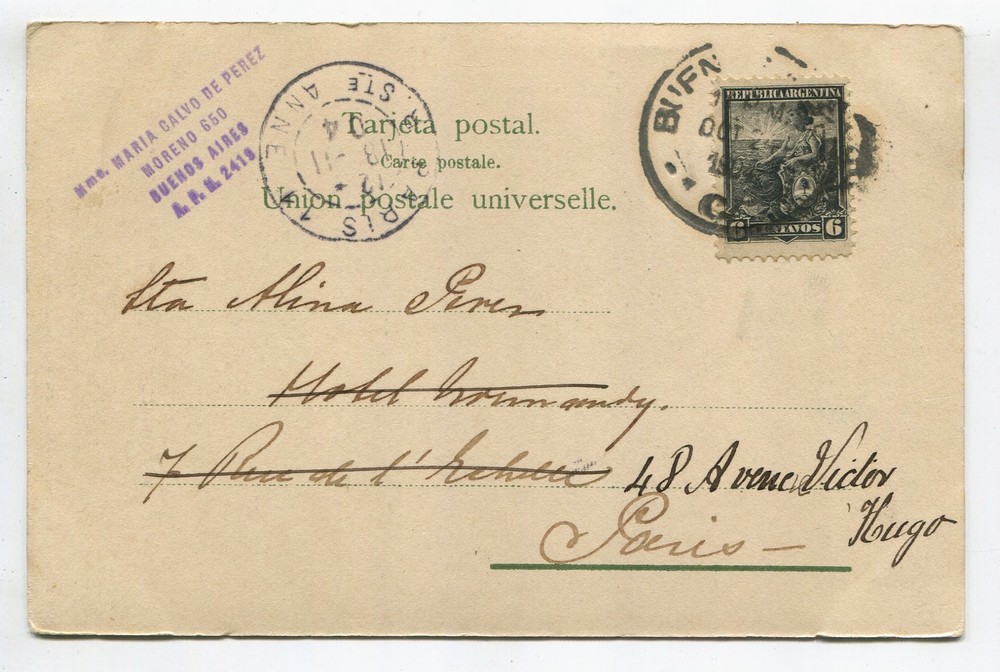 Mme. MARIA CALVO DE PEREZ
MORENO 650
BUENOS AIRES
A. P. N. 2413
PARIS STE ANNE
Tarjeta postal.
Carte postale.
Union postale universelle.
BUEN
OCT
REPUBLICA ARGENTINA
6 CENTAVOS 6
Sta Alina Perez
Hotel Normandy.
7 Rue de l'Echelle
48 Avenue Victor
Hugo
Paris —